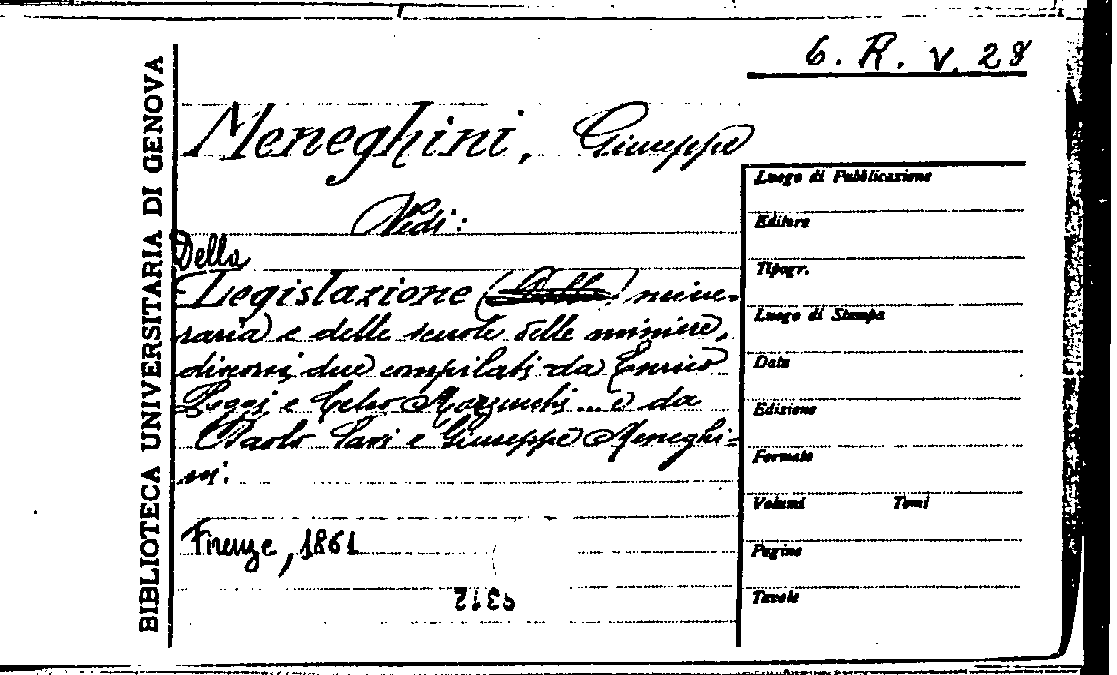 6. R. V. 28
BIBLIOTECA UNIVERSITARIA DI GENOVA
Meneghini, Giuseppe
Vedi:
Della
Legislazione (Della) mine-
raria e delle scuole delle miniere,
discorsi due compilati da Enrico
Poggi e Celso Marzucchi ... e da
Paolo Savi e Giuseppe Meneghi=
ni.
Firenze, 1861
Luogo di Pubblicazione
Editore
Tipogr.
Luogo di Stampa
Data
Edizione
Formato
Volumi Tomi
Pagine
Tavole